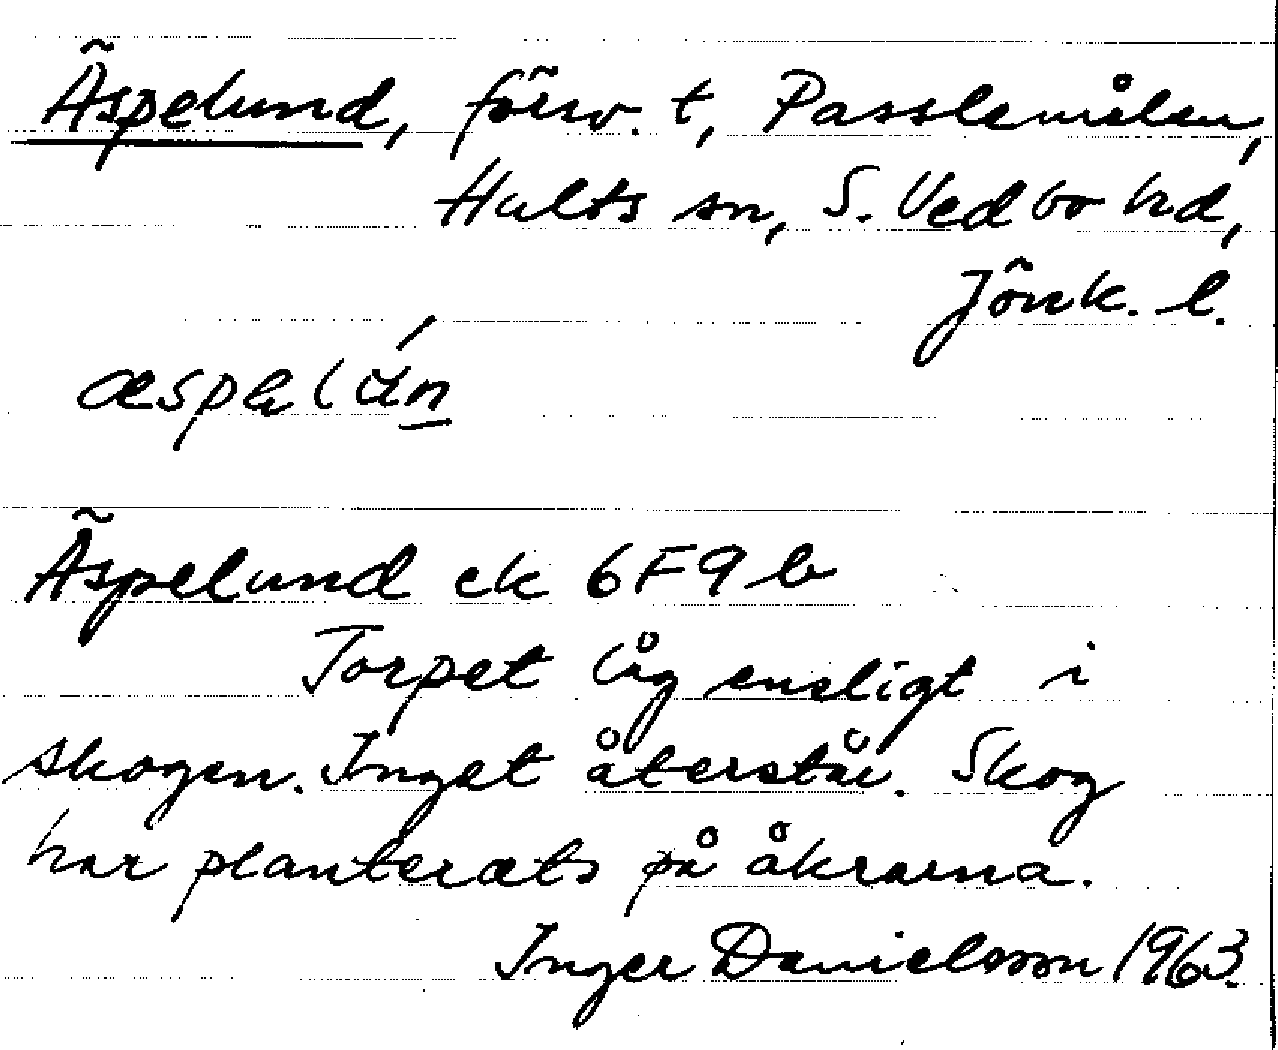 Äspelund, försv. t, Passlemålen,
Hults sn, S. Vedbo hd,
Jönk. l.
Äspelund ek 6F9b
Torpet låg ensligt i
skogen. Inget återstår. Skog
har planterats på åkrarna.
Inger Danielsson 1963.